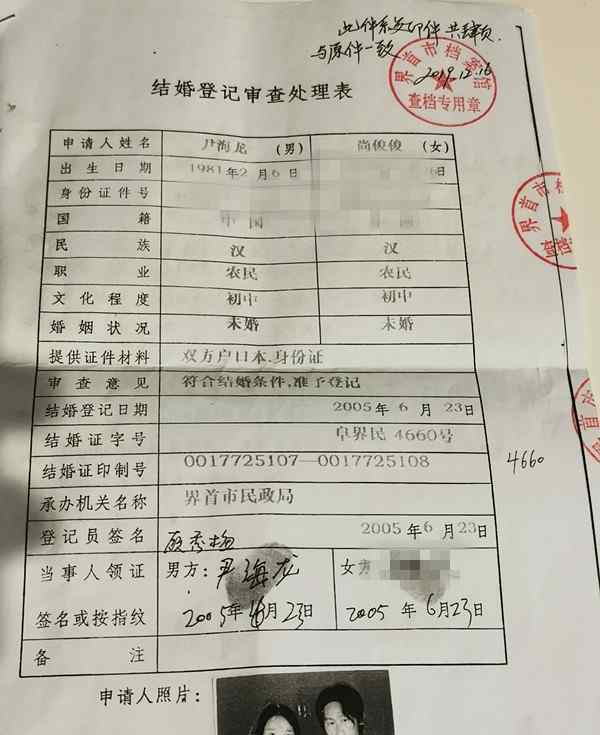 此件系复印件共肆页
与原件一致
2019.12.16
界首市档案馆
查档专用章
结婚登记审查处理表
申请人姓名 尹海龙 (男) 尚俊俊 (女)
出生日期 1981年2月6日 6日
身份证件号
国籍 中国
民族 汉 汉
职业 农民 农民
文化程度 初中 初中
婚姻状况 未婚 未婚
提供证件材料 双方户口本.身份证
审查意见 符合结婚条件,准予登记
结婚登记日期 2005年6月23日
结婚证字号 阜界民4660号
4660
结婚证印制号 0017725107—0017725108
承办机关名称 界首市民政局
登记员签名 顾秀梅 2005年6月23日
当事人领证 男方:尹海龙 女方
签名或按指纹 2005年6月23日 2005年6月23日
备注
申请人照片:
界首市档